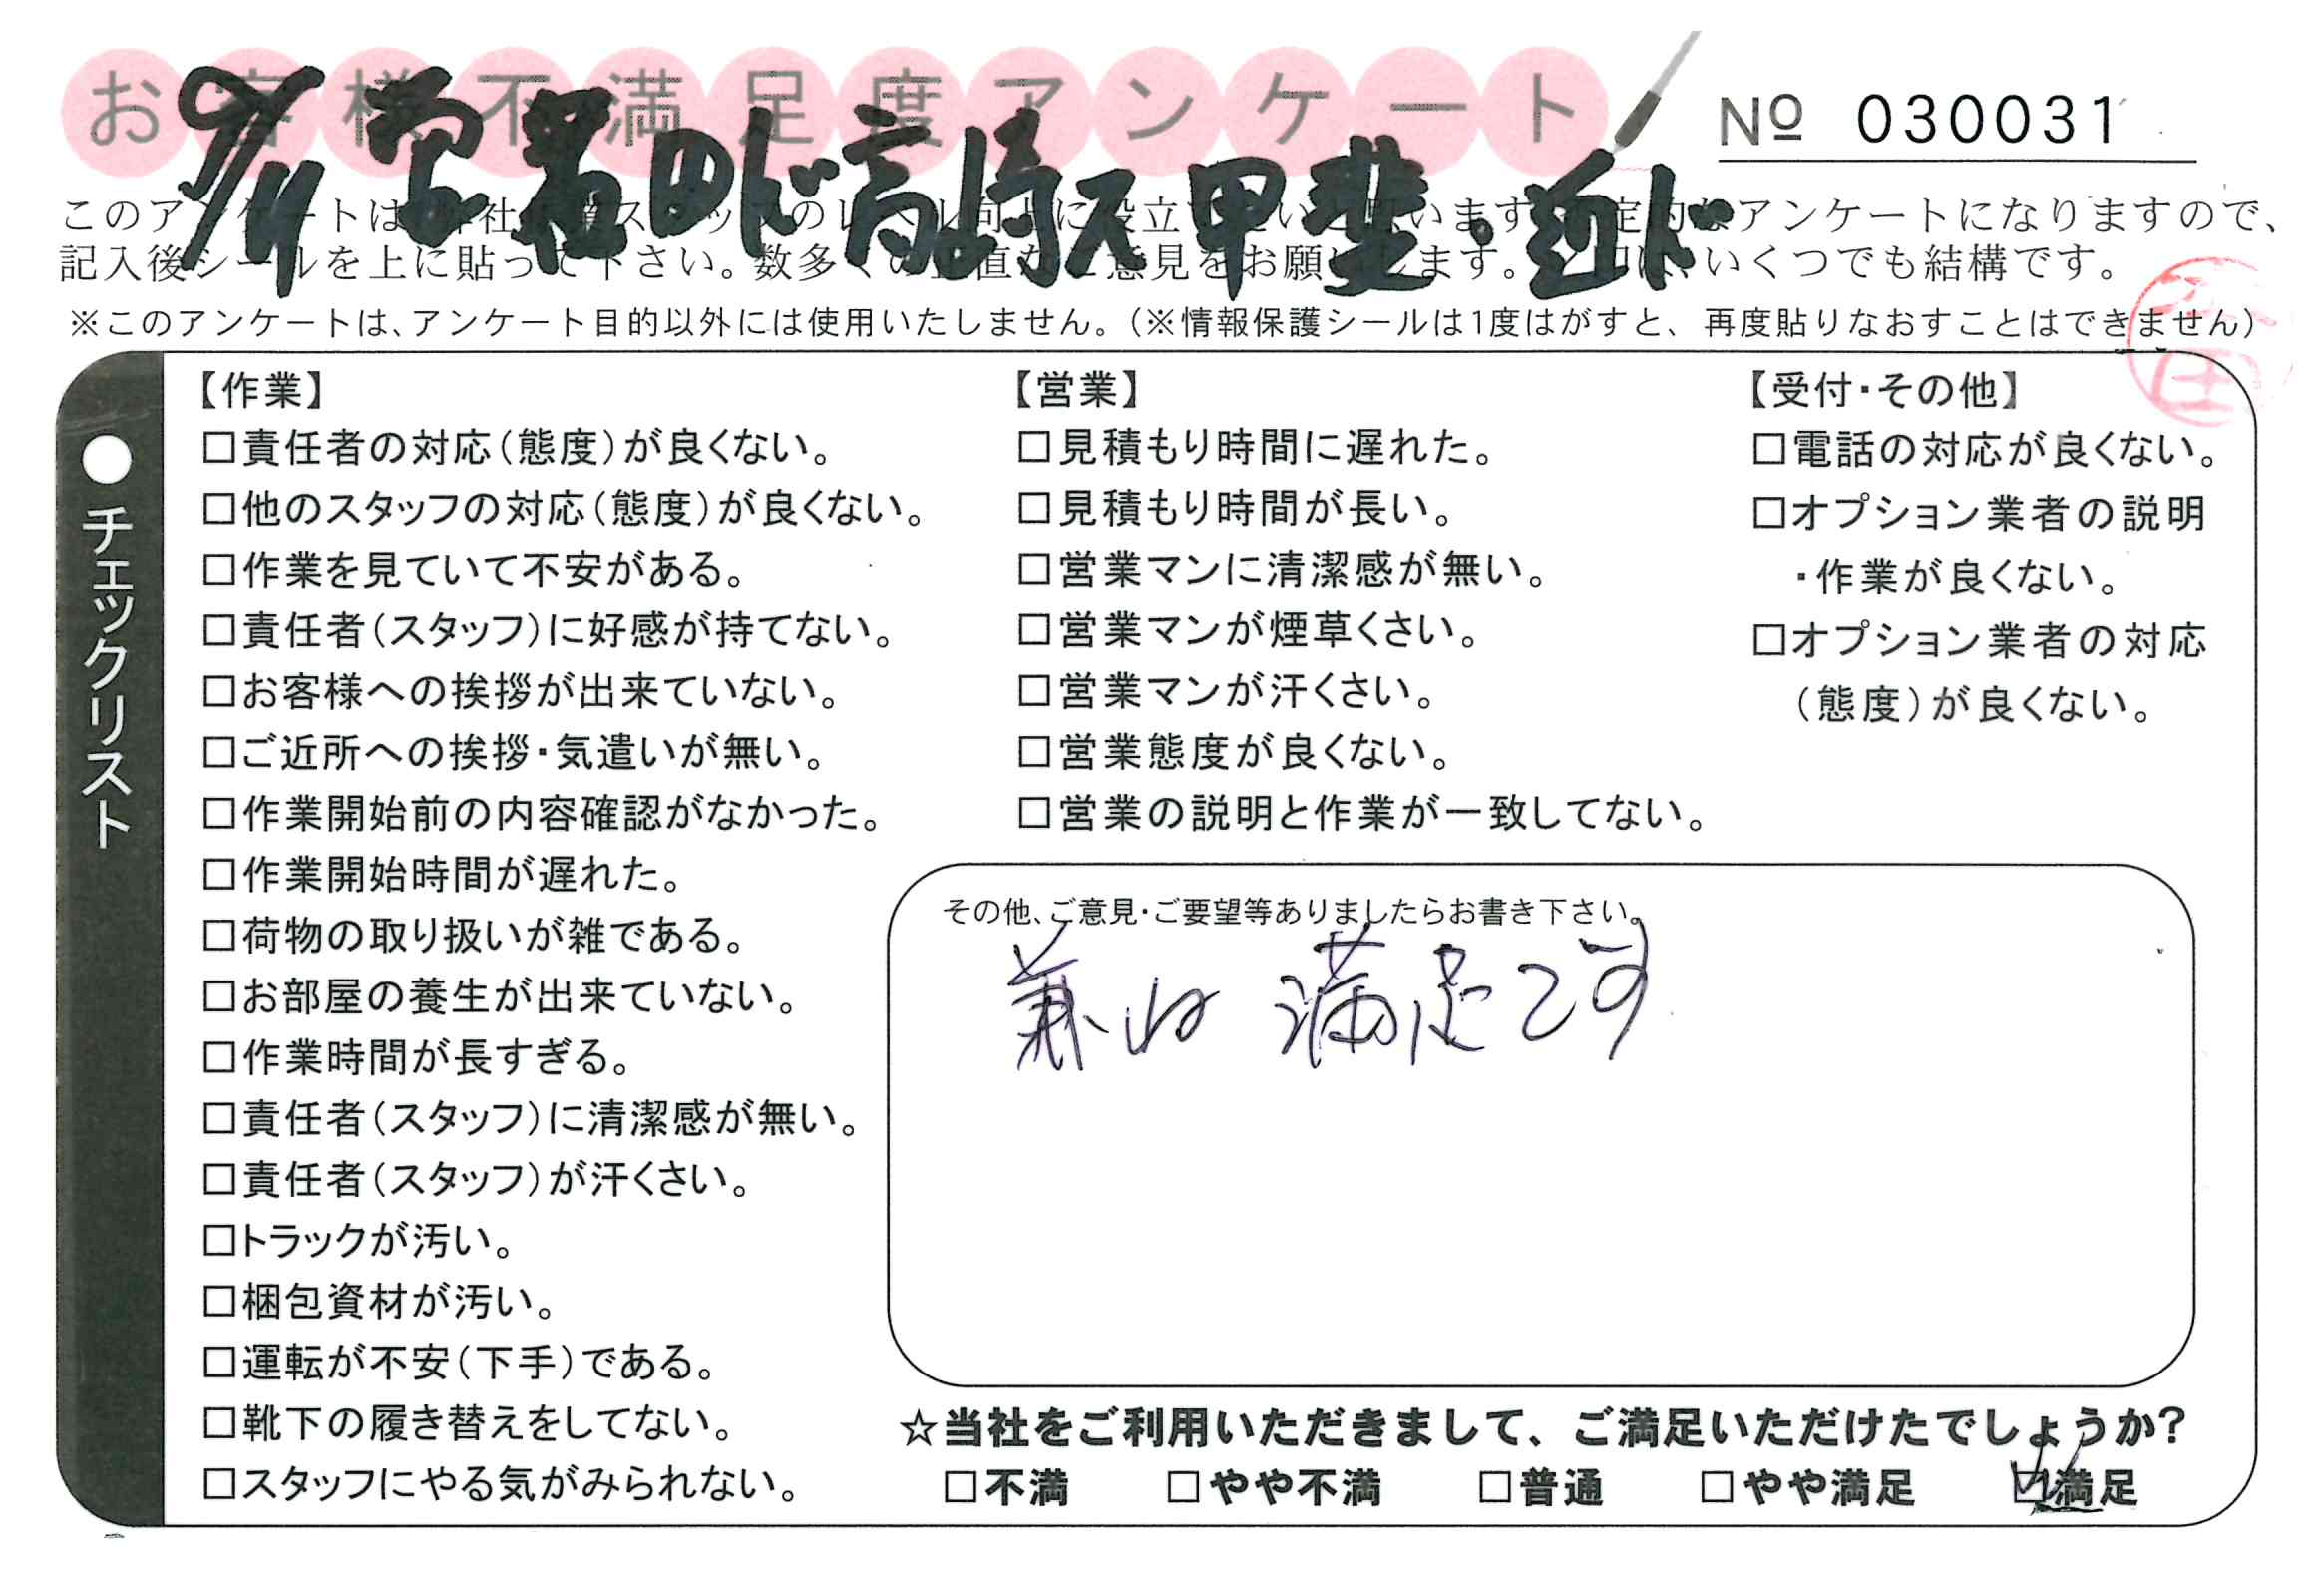 お客様不満足度アンケート
№ 030031
9/11 学 若田ド 高崎ス 甲斐・近ド
このアンケートは
アンケートになりますので、
記入後シールを上に貼って下さい。数多くの
意見をお願いします。
いくつでも結構です。
※このアンケートは、アンケート目的以外には使用いたしません。(※情報保護シールは1度はがすと、再度貼りなおすことはできません)
●チェックリスト
【作業】
□責任者の対応(態度)が良くない。
□他のスタッフの対応(態度)が良くない。
□作業を見ていて不安がある。
□責任者(スタッフ)に好感が持てない。
□お客様への挨拶が出来ていない。
□ご近所への挨拶・気遣いが無い。
□作業開始前の内容確認がなかった。
□作業開始時間が遅れた。
□荷物の取り扱いが雑である。
□お部屋の養生が出来ていない。
□作業時間が長すぎる。
□責任者(スタッフ)に清潔感が無い。
□責任者(スタッフ)が汗くさい。
□トラックが汚い。
□梱包資材が汚い。
□運転が不安(下手)である。
□靴下の履き替えをしてない。
□スタッフにやる気がみられない。
【営業】
□見積もり時間に遅れた。
□見積もり時間が長い。
□営業マンに清潔感が無い。
□営業マンが煙草くさい。
□営業マンが汗くさい。
□営業態度が良くない。
□営業の説明と作業が一致してない。
【受付・その他】
□電話の対応が良くない。
□オプション業者の説明
・作業が良くない。
□オプション業者の対応
(態度)が良くない。
その他、ご意見・ご要望等ありましたらお書き下さい。
満足です
☆当社をご利用いただきまして、ご満足いただけたでしょうか?
□不満 □やや不満 □普通 □やや満足 ☑満足